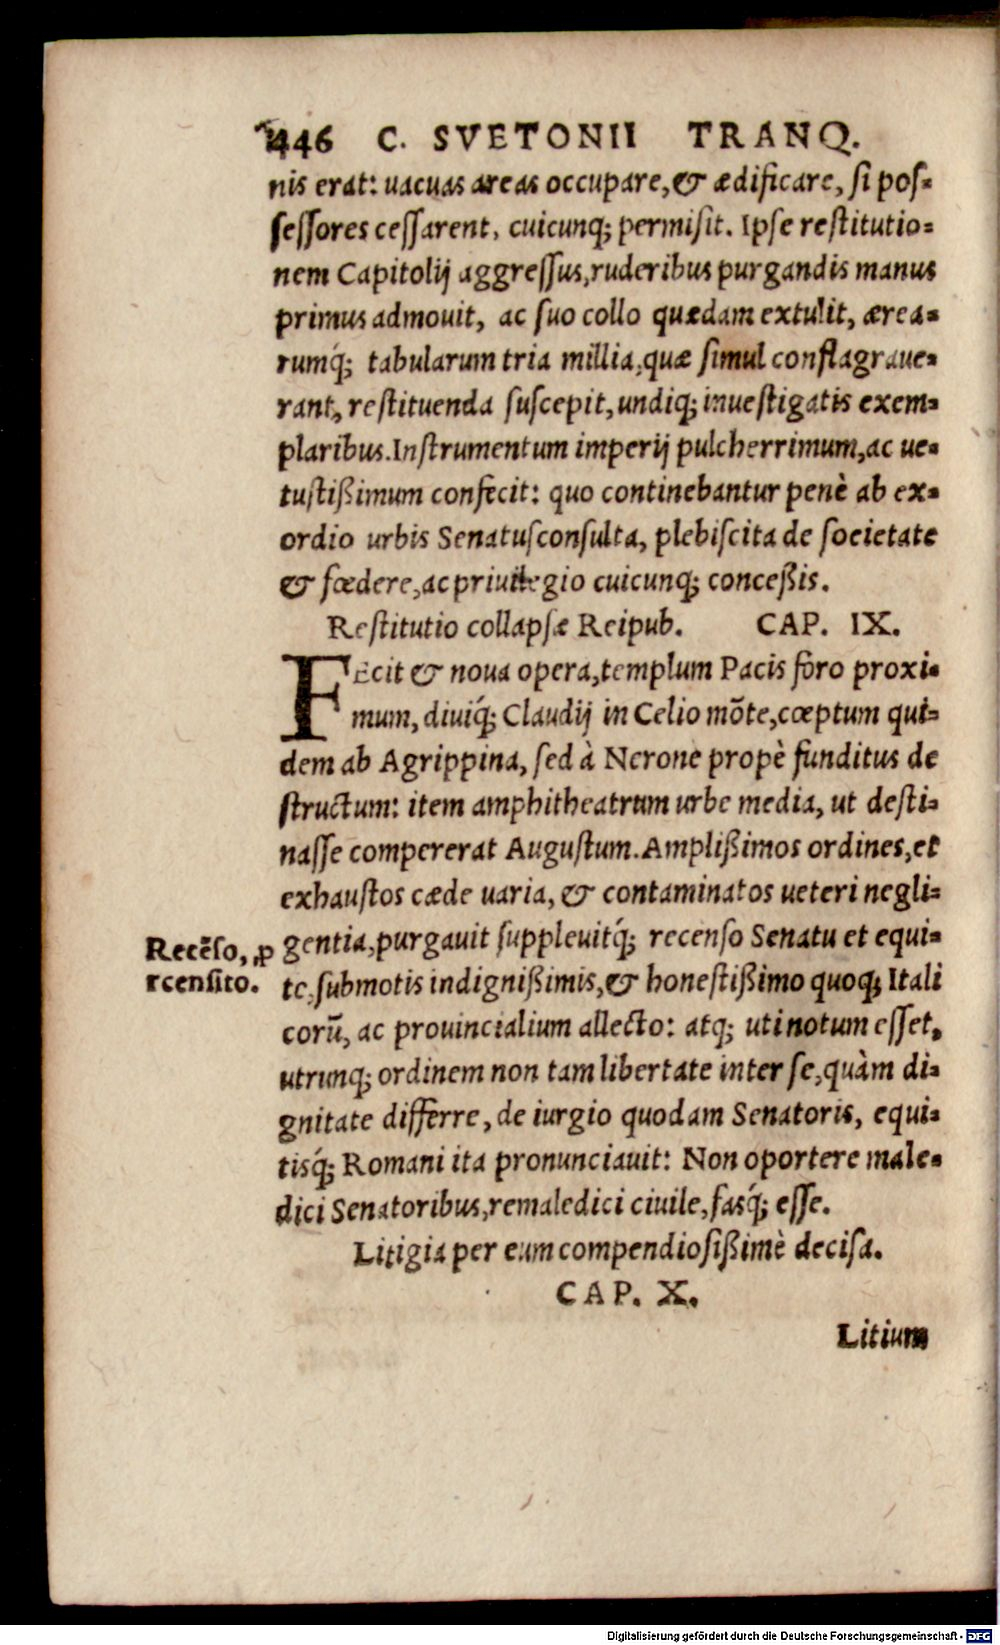 446 C. SVETONII TRANQ.
nis erat: uacuas areas occupare, & ædificare, si pos-
sessores cessarent, cuicunq; permisit. Ipse restitutio-
nem Capitolij aggressus, ruderibus purgandis manus
primus admouit, ac suo collo quædam extulit, ærea-
rumq́; tabularum tria millia, quæ simul conflagraue-
rant, restituenda suscepit, undiq; inuestigatis exem-
plaribus. Instrumentum imperij pulcherrimum, ac ue-
tustißimum confecit: quo continebantur penè ab ex-
ordio urbis Senatusconsulta, plebiscita de societate
& fœdere, ac priuilegio cuicunq; conceßis.
Restitutio collapsæ Reipub. CAP. IX.
FEcit & noua opera, templum Pacis foro proxi-
mum, diuiq́; Claudij in Celio mõte, cœptum qui-
dem ab Agrippina, sed à Nerone propè funditus de
structum: item amphitheatrum urbe media, ut desti-
nasse compererat Augustum. Amplißimos ordines, et
exhaustos cæde uaria, & contaminatos ueteri negli-
gentia, purgauit suppleuitq́; recenso Senatu et equi-
te, submotis indignißimis, & honestißimo quoq; Itali
corũ, ac prouincialium allecto: atq; uti notum esset,
utrunq; ordinem non tam libertate inter se, quàm di-
gnitate differre, de iurgio quodam Senatoris, equi-
tisq́; Romani ita pronunciauit: Non oportere male-
dici Senatoribus, remaledici ciuile, fasq́; esse.
Recẽso, ꝓ
rcensito.
Litigia per eum compendiosißimè decisa.
CAP. X.
Litium
Digitalisierung gefördert durch die Deutsche Forschungsgemeinschaft - DFG